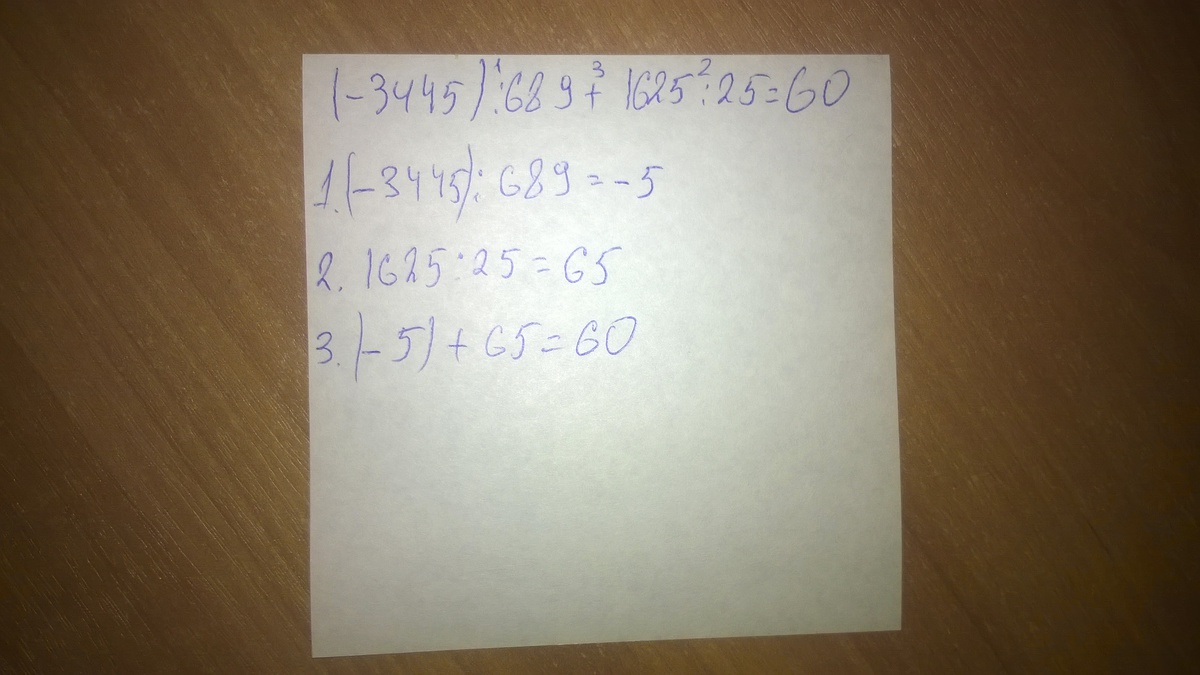 (-3445)¹:689+³1625²:25=60
1.(-3445):689=-5
2. 1625:25=65
3.(-5)+65=60